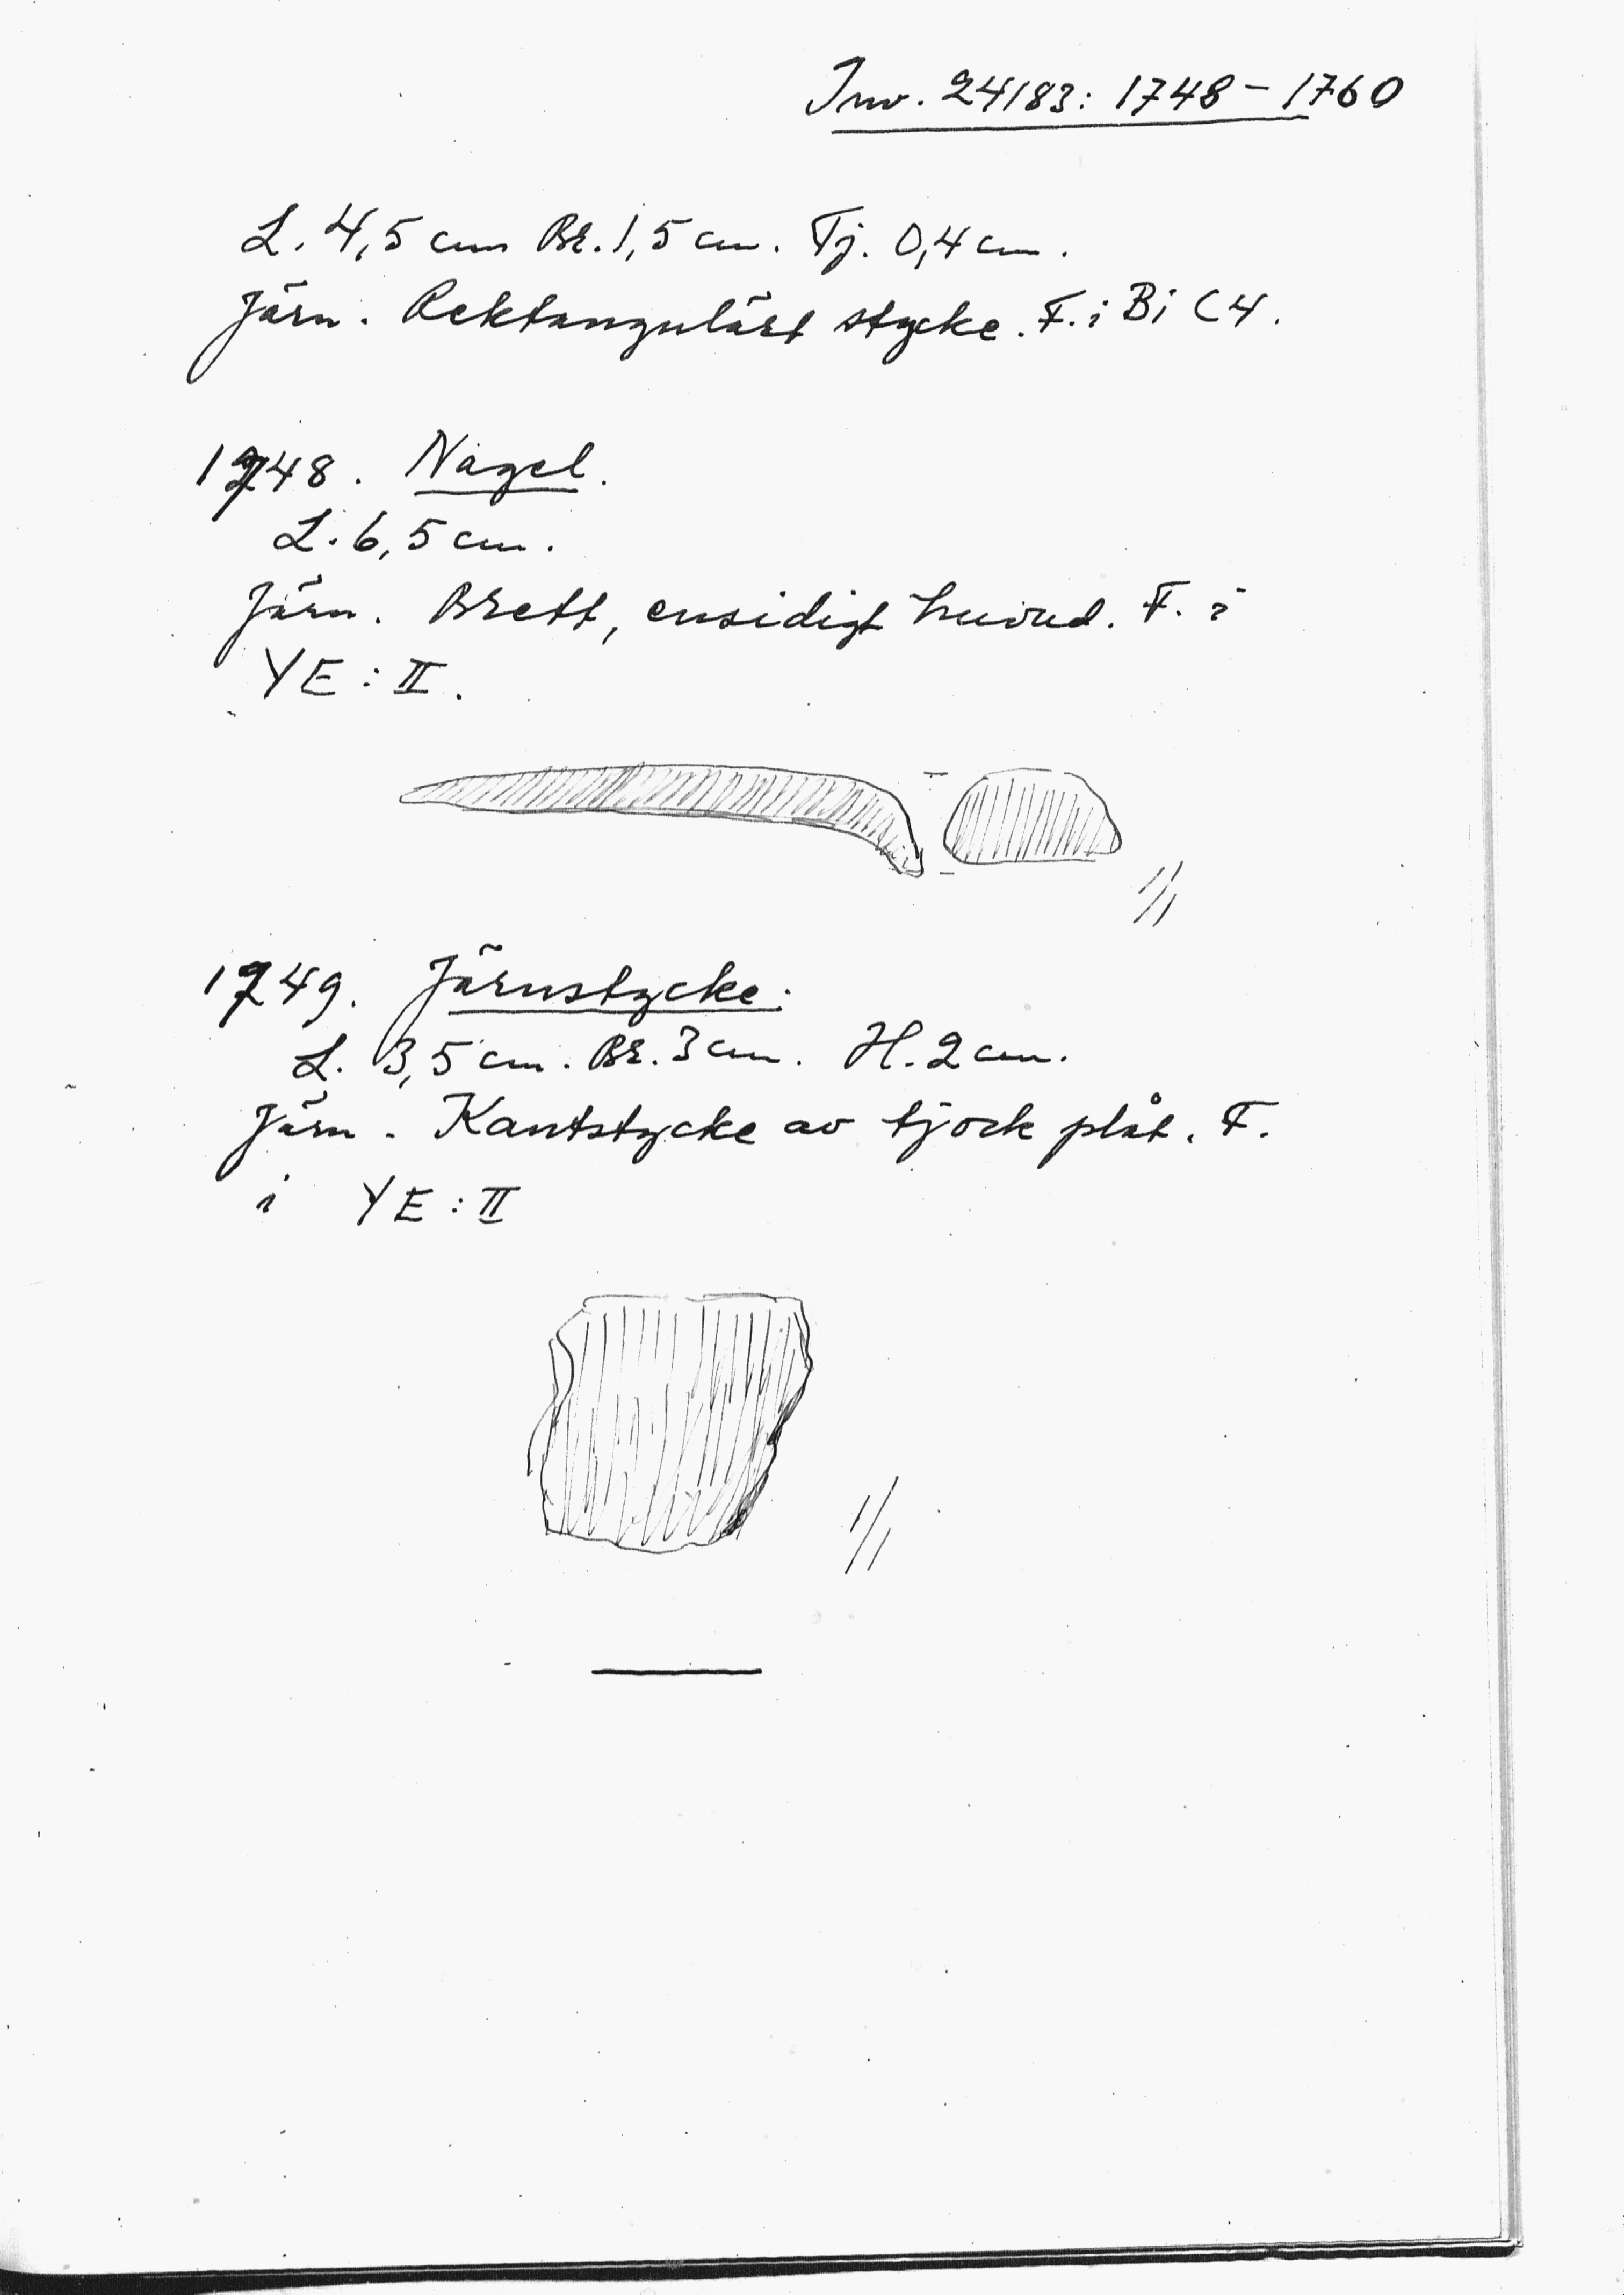 Inv. 24183: 1748-1760
L. 4,5 cm Br. 1,5 cm. Tj. 0,4 cm.
Järn. Rektangulärt stycke. F. i Bi C4.
1748. Nagel.
L. 6,5 cm.
Järn. Brett, ensidigt huvud. F. i
YE : II.
1/1
1749. Järnstycke.
L. 3,5 cm. Br. 3 cm. H. 2 cm.
Järn. Kantstycke av tjock plåt. F.
i YE : II
1/1